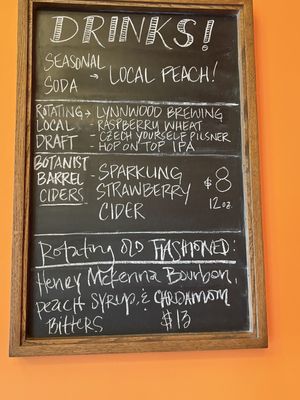 DRINKS!
SEASONAL
SODA → LOCAL PEACH!
ROTATING → LYNNWOOD BREWING
LOCAL - RASPBERRY WHEAT
DRAFT - CZECH YOURSELF PILSNER
- HOP ON TOP IPA
BOTANIST
BARREL - SPARKLING
CIDERS STRAWBERRY $8
CIDER 12oz.
Rotating OLD FASHIONED:
Henry McKenna Bourbon,
peach syrup, & CARDAMOM
BITTERS $13